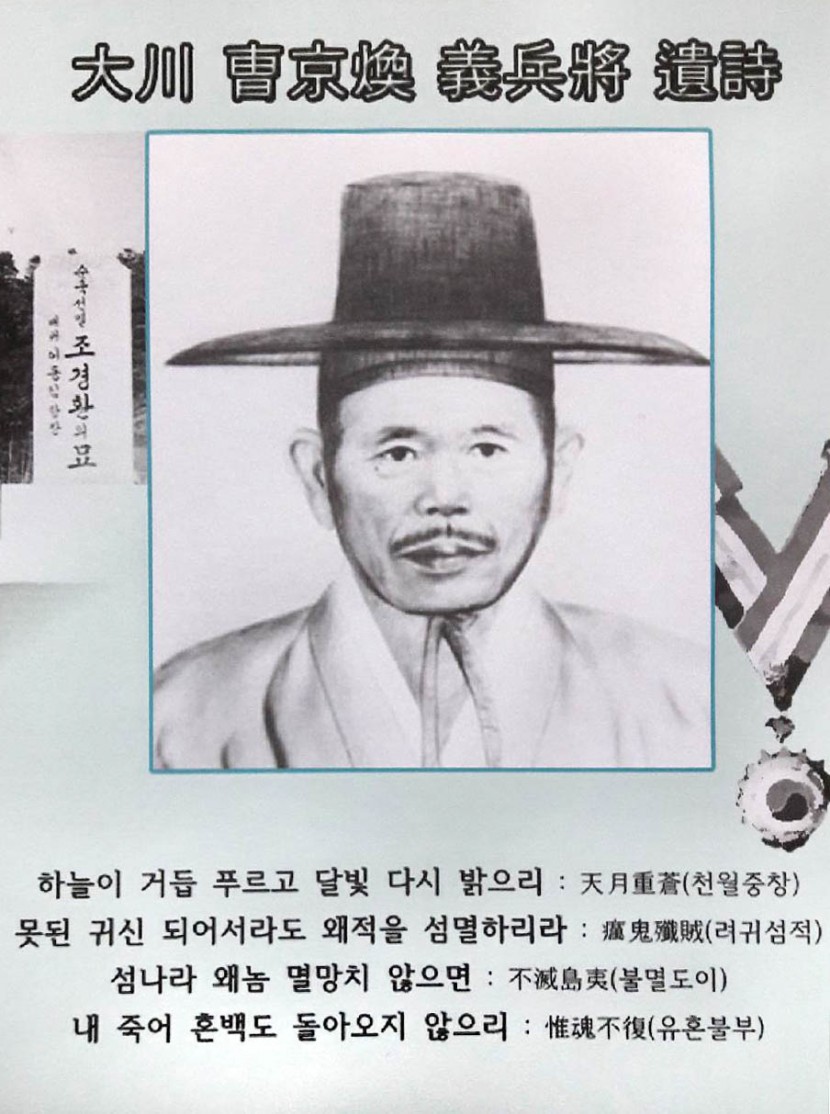 大川 曺京煥 義兵將 遺詩
순국선열 조경환의 묘
하늘이 거듭 푸르고 달빛 다시 밝으리 : 天月重蒼(천월중창)
못된 귀신 되어서라도 왜적을 섬멸하리라 : 癘鬼殲賊(려귀섬적)
섬나라 왜놈 멸망치 않으면 : 不滅島夷(불멸도이)
내 죽어 혼백도 돌아오지 않으리 : 惟魂不復(유혼불부)